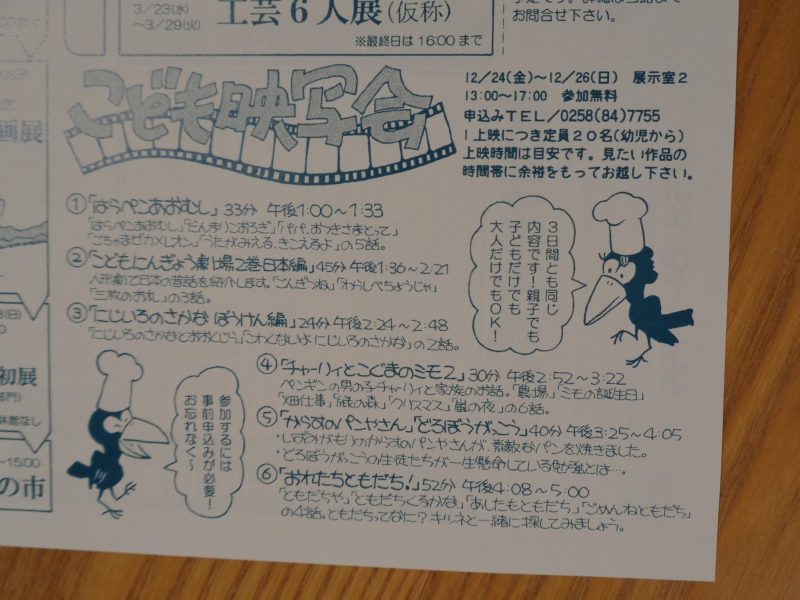 3/23(水)
～3/29(火)
工芸6人展(仮称)
※最終日は16:00まで
お問合せ下さい。
画展
初展
休館なし
～15:00
の市
こども映写会
12/24(金)～12/26(日) 展示室2
13:00～17:00 参加無料
申込みTEL/0258(84)7755
1上映につき定員20名(幼児から)
上映時間は目安です。見たい作品の
時間帯に余裕をもってお越し下さい。
①「はらぺこあおむし」33分 午後1:00～1:33
「はらぺこあおむし」「だんまりこおろぎ」「パパ、おつきさまとって」
「ごちゃまぜカメレオン」「うたがみえる、きこえるよ」の5話。
②「こどもにんぎょう劇場2巻日本編」45分 午後1:36～2:21
人形劇で日本の昔話を紹介します。「ごんぎつね」「わらしべちょうじゃ」
「三枚のおれ」の3話。
③「にじいろのさかな ぼうけん編」24分 午後2:24～2:48
「にじいろのさかなとおおくじら」「こわくないよ にじいろのさかな」の2話。
3日間とも同じ
内容です！親子でも
子どもだけでも
大人だけでもOK！
④「チャーリィとこぐまのミモ2」30分 午後2:52～3:22
ペンギンの男の子チャーリィと家族のお話。「農場」「ミモの誕生日」
「畑仕事」「紙の森」「クリスマス」「嵐の夜」の6話。
⑤「からすのパンやさん」「どろぼうがっこう」40分 午後3:25～4:05
・いずみがもりのからすのパンやさんが、素敵なパンを焼きました。
・どろぼうがっこうの生徒たちが一生懸命している勉強とは…。
⑥「おれたちともだち！」52分 午後4:08～5:00
「ともだちや」「ともだちくるかな」「あしたもともだち」「ごめんねともだち」
の4話。ともだちってなに？キツネと一緒に探してみましょう。
参加するには
事前申込みが必要！
お忘れなく～